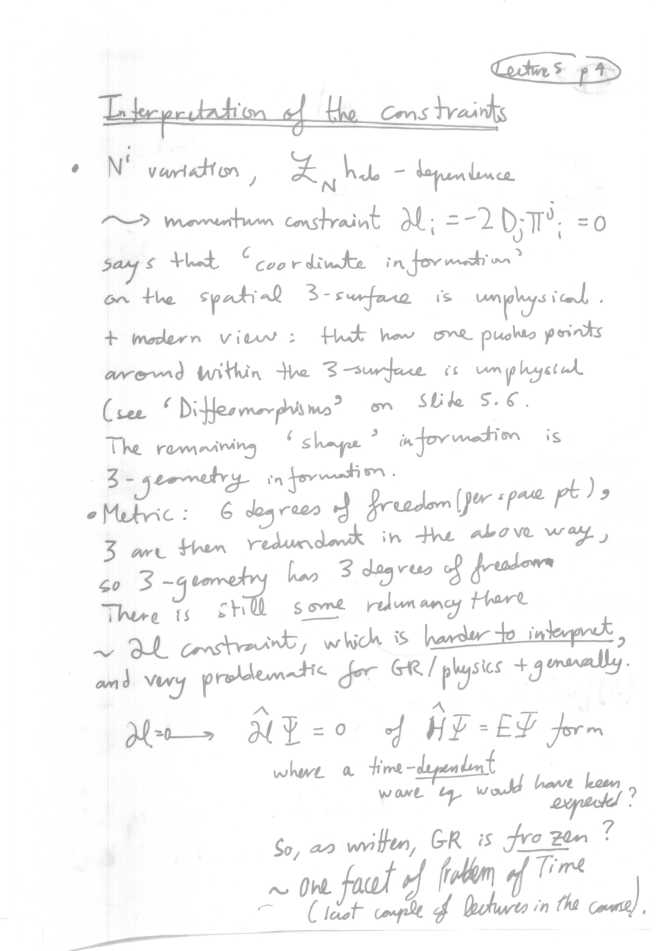 Lecture 5 p 4
Interpretation of the constraints
• Nⁱ variation, ℒ_N has no - dependence
⇝ momentum constraint ℋᵢ = -2 Dⱼ πʲᵢ = 0
says that 'coordinate information'
on the spatial 3-surface is unphysical.
+ modern view : that how one pushes points
around within the 3-surface is unphysical
(see 'Diffeomorphisms' on slide 5.6.
The remaining 'shape' information is
3-geometry information.
• Metric : 6 degrees of freedom (per space pt),
3 are then redundant in the above way,
so 3-geometry has 3 degrees of freedom
There is still some redunancy there
~ ℋ constraint, which is harder to interpret,
and very problematic for GR/physics + generally.
ℋ=0 ⟶ ℋ̂Ψ = 0 of ĤΨ = EΨ form
where a time-dependent
wave eq would have been
expected?
So, as written, GR is frozen?
~ one facet of Problem of Time
(last couple of lectures in the course).